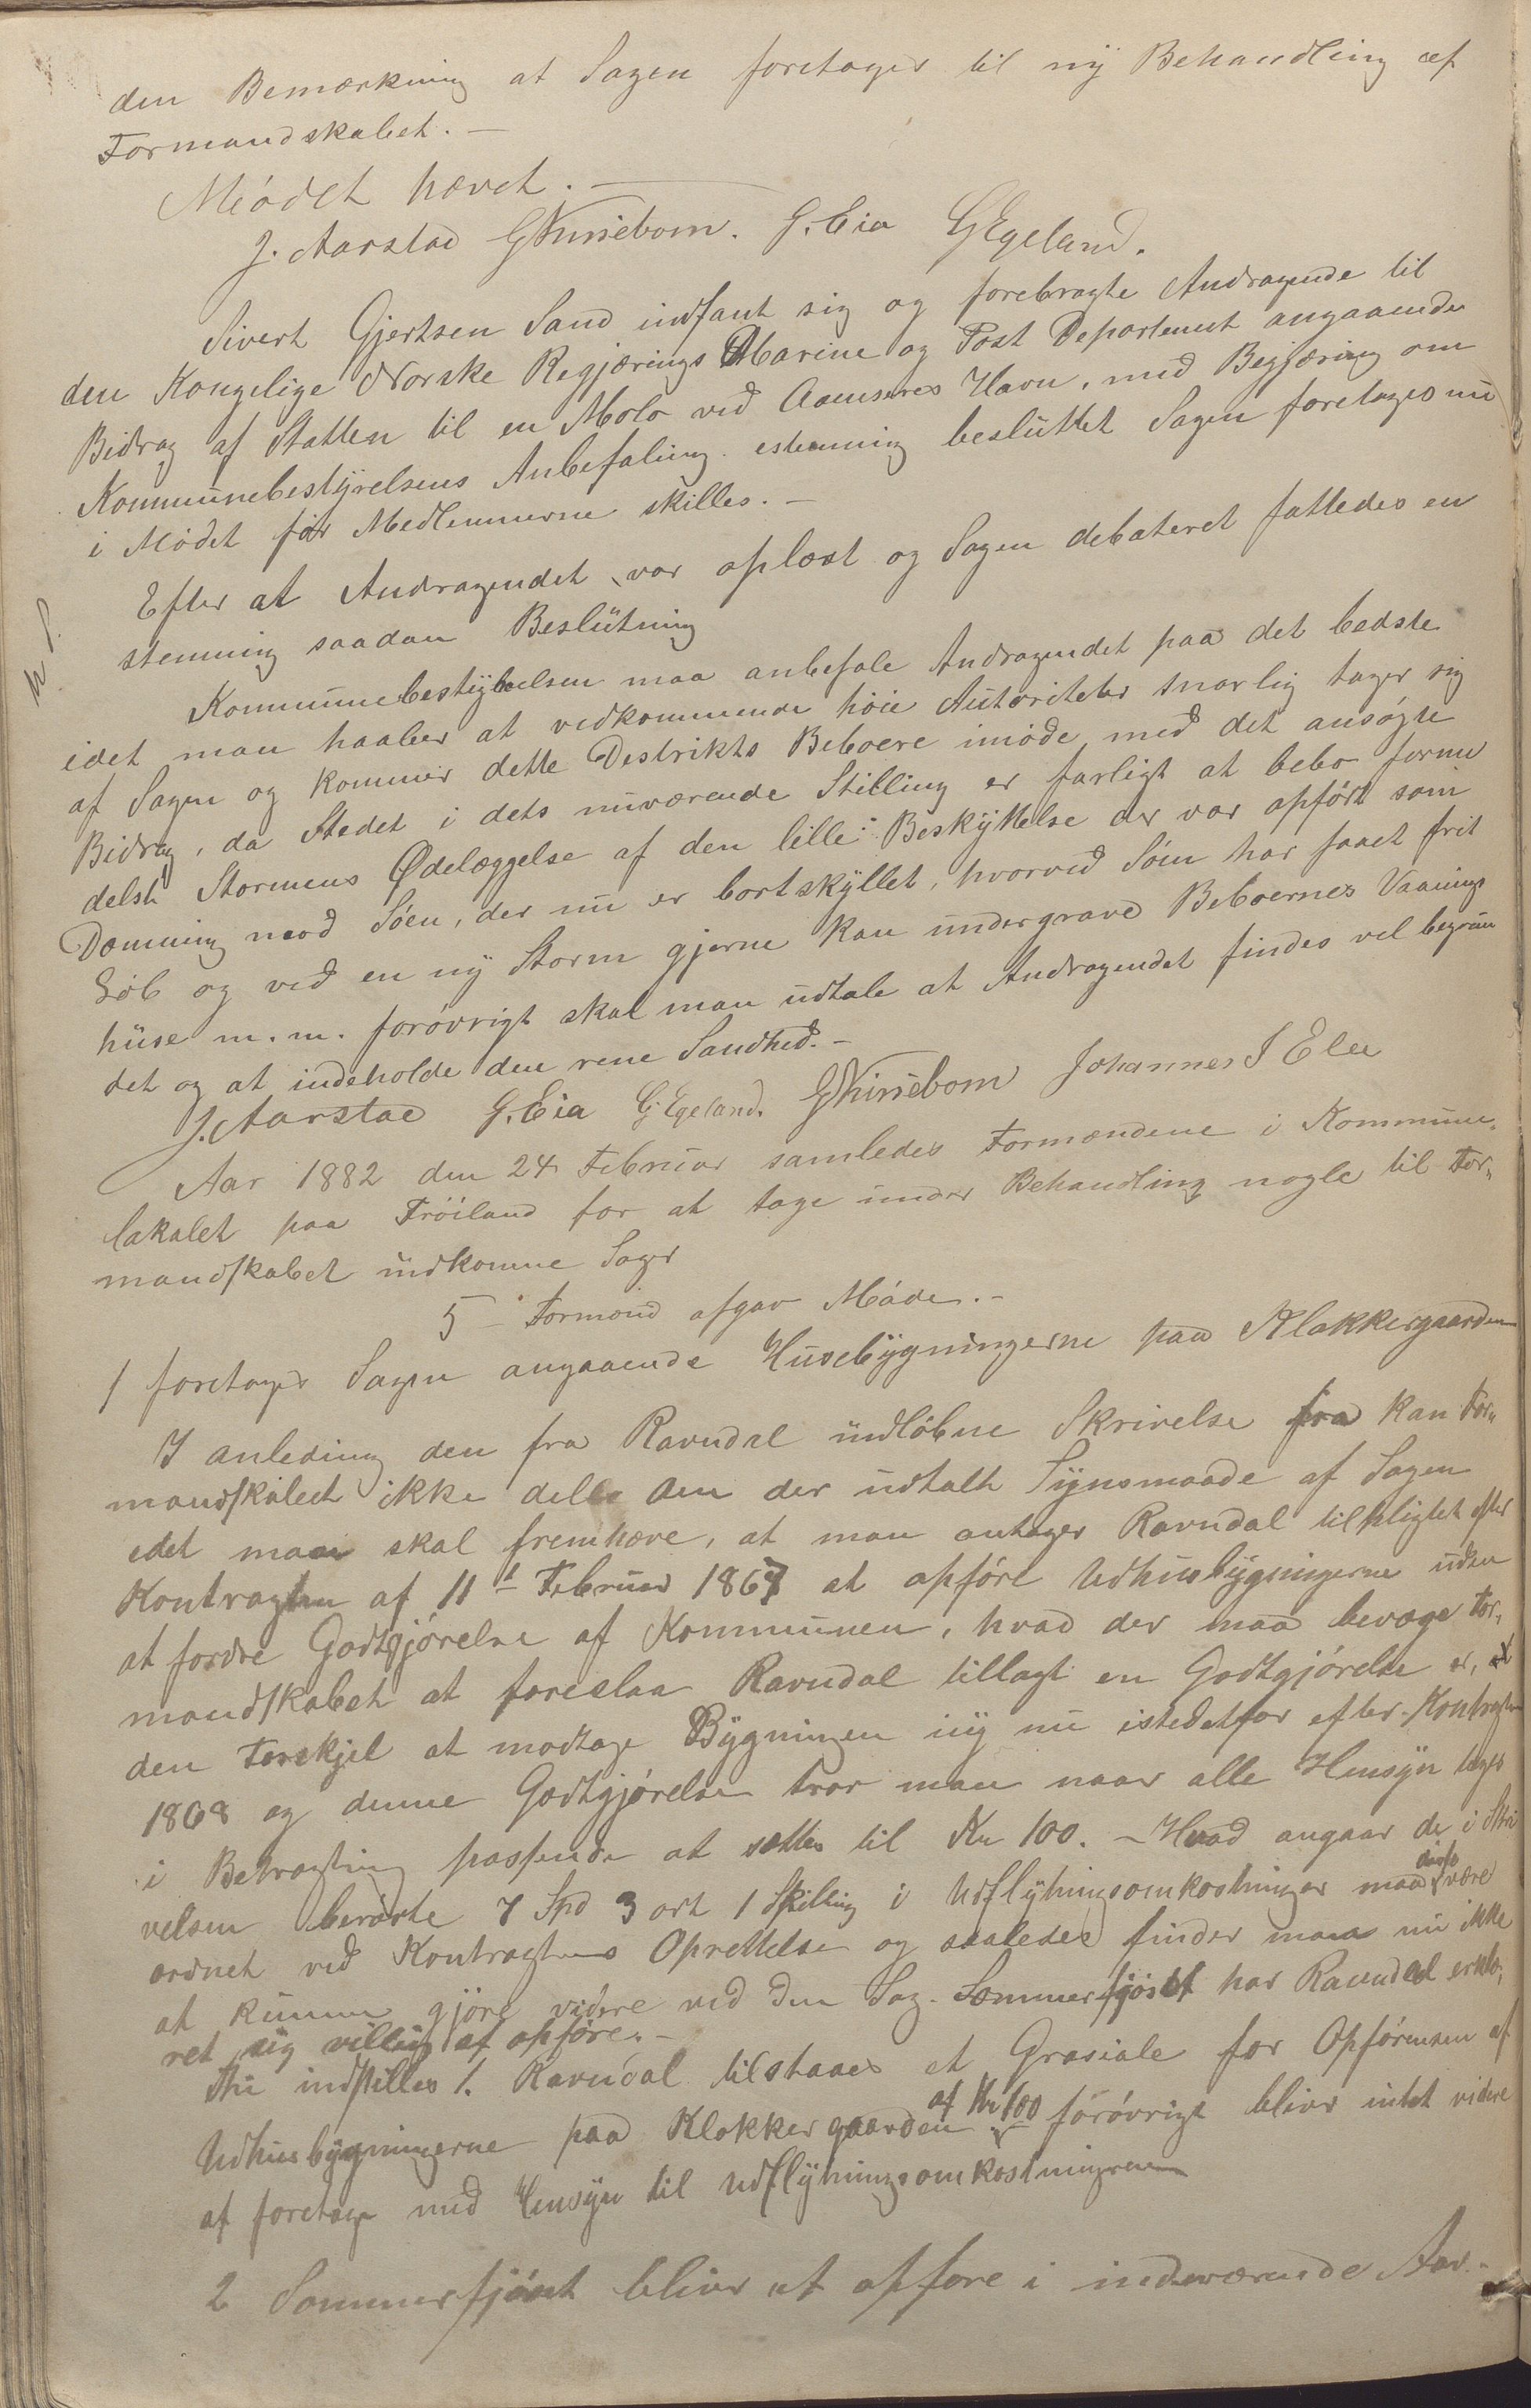 den Bemærkning at Sagen foretages til ny Behandling af
Formandskabet. —
Mødet hævet. —
J. Aarstad G Kirsebom. G. Eia G Egeland.
Sivert Gjertsen Sand indfant sig og forebragte Andragende til
den Kongelige Norske Regjærings Marine og Post Departement angaaende
Bidrag af Statten til en Molo ved Havn, med Begjæring om
Kommunebestyrelsens Anbefaling. estemmig besluttet Sagen foretages nu
i Mødet før Medlemmerne skilles. —
Efter at Andragendet var oplæst og Sagen debateret fattedes en
stemmig saadan Beslutning
Kommunebestyrelsen maa anbefale Andragendet paa det bedste
idet man haaber at vedkommende høie Autoriteter snarlig tager sig
af Sagen og kommer dette Destrikts Beboere imøde med det ansøgte
Bidrag, da Stedet i dets nuværende Stilling er farligt at bebo formedelst
Stormens Ødelæggelse af den lille Beskyttelse der var opført som
Dæmning mod Søen, der nu er bortskyllet, hvorved Søen har faaet frit
Løb og ved en ny Storm gjerne kan undergrave Beboernes Vaanings
huse m. m. forøvrigt skal man udtale at Andragendet findes vel begrun
det og at indeholde den rene Sandhed. —
J. Aarstad G. Eia G. Egeland. G Kirsebom Johannes J
Aar 1882 den 24 Februar samledes Formændene i Kommune-
lakalet paa Frøiland for at tage under Behandling nogle til For-
mandskabet indkomne Sager
5 Formænd afgav Møde. —
1 foretages Sagen angaaende Husebygningerne paa Klokkergaarden
I anleding den fra Ravndal indløbne Skrivelse fra kan For-
mandskabet ikke delle den der udtalt Synsmaade af Sagen
idet man skal fremhæve, at man antager Ravndal tilpligtet efter
Kontragten af 11t Februar 1867 at opføre Udhusbygningerne uden
at fordre Godtgjørelse af Kommunen, hvad der maa bevæge For-
mandskabet at foreslaa Ravndal tillagt en Godtgjørelse er,
den Forskjel at modtage Bygningen ny nu istedetfor efter Kontragten
1868 og denne Godtgjørelse tror man naar alle Hensyn tages
i Betragtning passende at sættes til Kr 100. — Hvad angaar de i Skri
velsen berørte 7 Spd 3 ort 1 Skilling i Udflytningsomkostninger maa være
ordnet ved Kontragtens Oprettelse og saaledes finder man nu ikke
at kunne gjøre videre ved den Sag. Sommerfjøset har Ravndal erklæ-
ret sig villig at opføre. —
Thi indstilles 1. Ravndal tilstaaes et Grasiale for Opførensen af
Udhusbygningerne paa Klokkergaarden af Kr 100 forøvrigt bliver intet videre
at foretage med Hensyn til Udflytningsomkostningerne
2 Sommerfjøset bliver at opføre i indeværende Aar. —